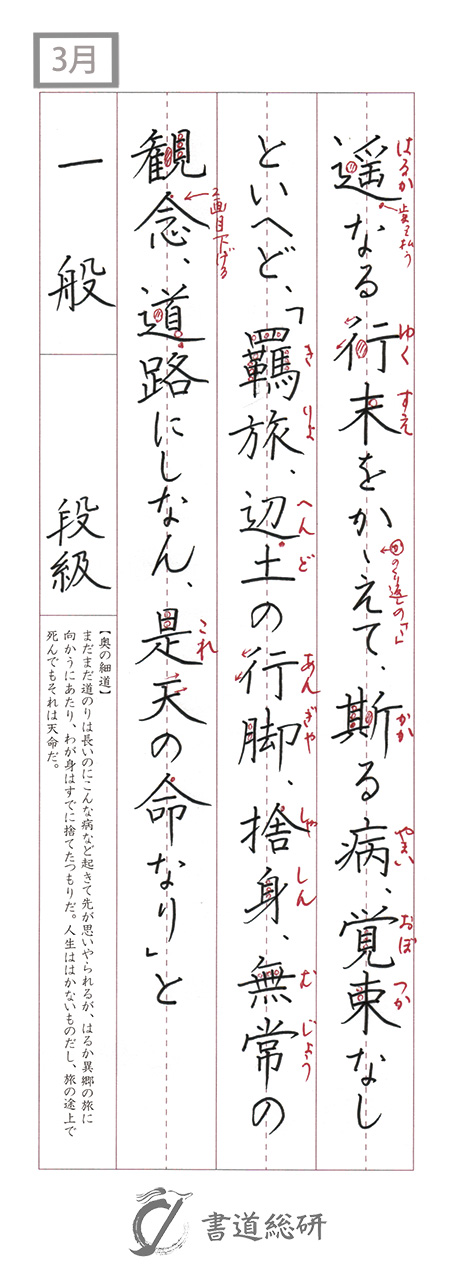 3月
遥なる行末をかゝえて、斯る病、覚束なし
はるか
ゆく
すえ
かか
やまい
おぼ
つか
といへど、「羇旅、辺土の行脚、捨身、無常の
き
りょ
へん
ど
あん
ぎゃ
しゃ
しん
む
じょう
観念、道路にしなん、是天の命なり」と
2画目下げる
これ
一般
段級
【奥の細道】
まだまだ道のりは長いのにこんな病など起きて先が思いやられるが、はるか異郷の旅に
向かうにあたり、わが身はすでに捨てたつもりだ。人生ははかないものだし、旅の途上で
死んでもそれは天命だ。
書道総研